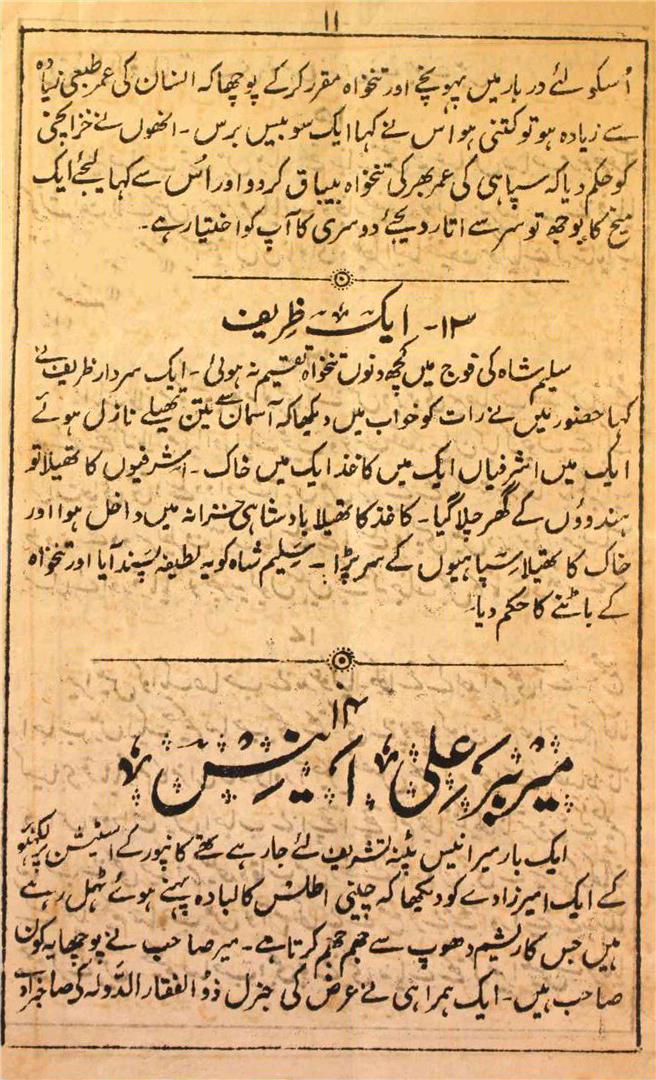 ۱۱
اُسکو لئے دربار میں پہونچے اور تنخواہ مقرر کرکے پوچھا کہ انسان کی عمر طبعی زیادہ
سے زیادہ ہو تو کتنی ہو اس نے کہا ایک سو بیس برس ۔ انھوں نے خزانچی
کو حکم دیا کہ سپاہی کی عمر بھر کی تنخواہ بیباق کردو اور اُس سے کہا لیجئے ایک
میخ کا بوجھ تو سر سے اتار دیجئے دوسری کا آپ کو اختیار ہے ۔
۱۳ - ایک ظریف
سلیم شاہ کی فوج میں کچھ دنوں تنخواہ تقسیم نہ ہوئی ۔ ایک سردار ظریف نے
کہا حضور میں نے رات کو خواب میں دیکھا کہ آسمان سے تین تھیلے نازل ہوئے
ایک میں اشرفیاں ایک میں کاغذ ایک میں خاک ۔ اشرفیوں کا تھیلا تو
ہندوؤں کے گھر چلا گیا ۔ کاغذ کا تھیلا بادشاہی خزانہ میں داخل ہوا اور
خاک کا تھیلا سپاہیوں کے سر پڑا ۔ سلیم شاہ کو یہ لطیفہ پسند آیا اور تنخواہ
کے بانٹنے کا حکم دیا ۔
۱۴
میر ببر علی انیس
ایک بار میر انیس پٹنہ تشریف لئے جا رہے تھے کانپور کے اسٹیشن پر لکھنؤ
کے ایک امیرزادے کو دیکھا کہ چینی اطلس کا لبادہ پہنے ہوئے ٹہل رہے
ہیں جس کا ریشم دھوپ سے جھم جھم کرتا ہے ۔ میر صاحب نے پوچھا یہ کون
صاحب ہیں ۔ ایک ہمراہی نے عرض کی جنرل ذوالفقار الدّولہ کے صاحبزادے